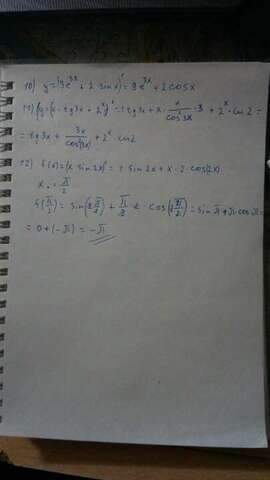 10) y=(3e^{3x} + 2 sin x)' = 9e^{3x} + 2cosx
11) y=(x · tg3x + 2^x)' = tg3x + x · \frac{x}{cos²3x} · 3 + 2^x · ln2 =
= tg3x + \frac{3x}{cos²(3x)} + 2^x · ln2
12) f(x)=(x sin2x)' = sin2x + x · 2 · cos(2x)
x₀ = \frac{π}{2}
f(\frac{π}{2}) = sin(2\frac{π}{2}) + \frac{π}{2} · 2 · cos(2\frac{π}{2}) = sin π + π cos π =
= 0 + (-π) = -π